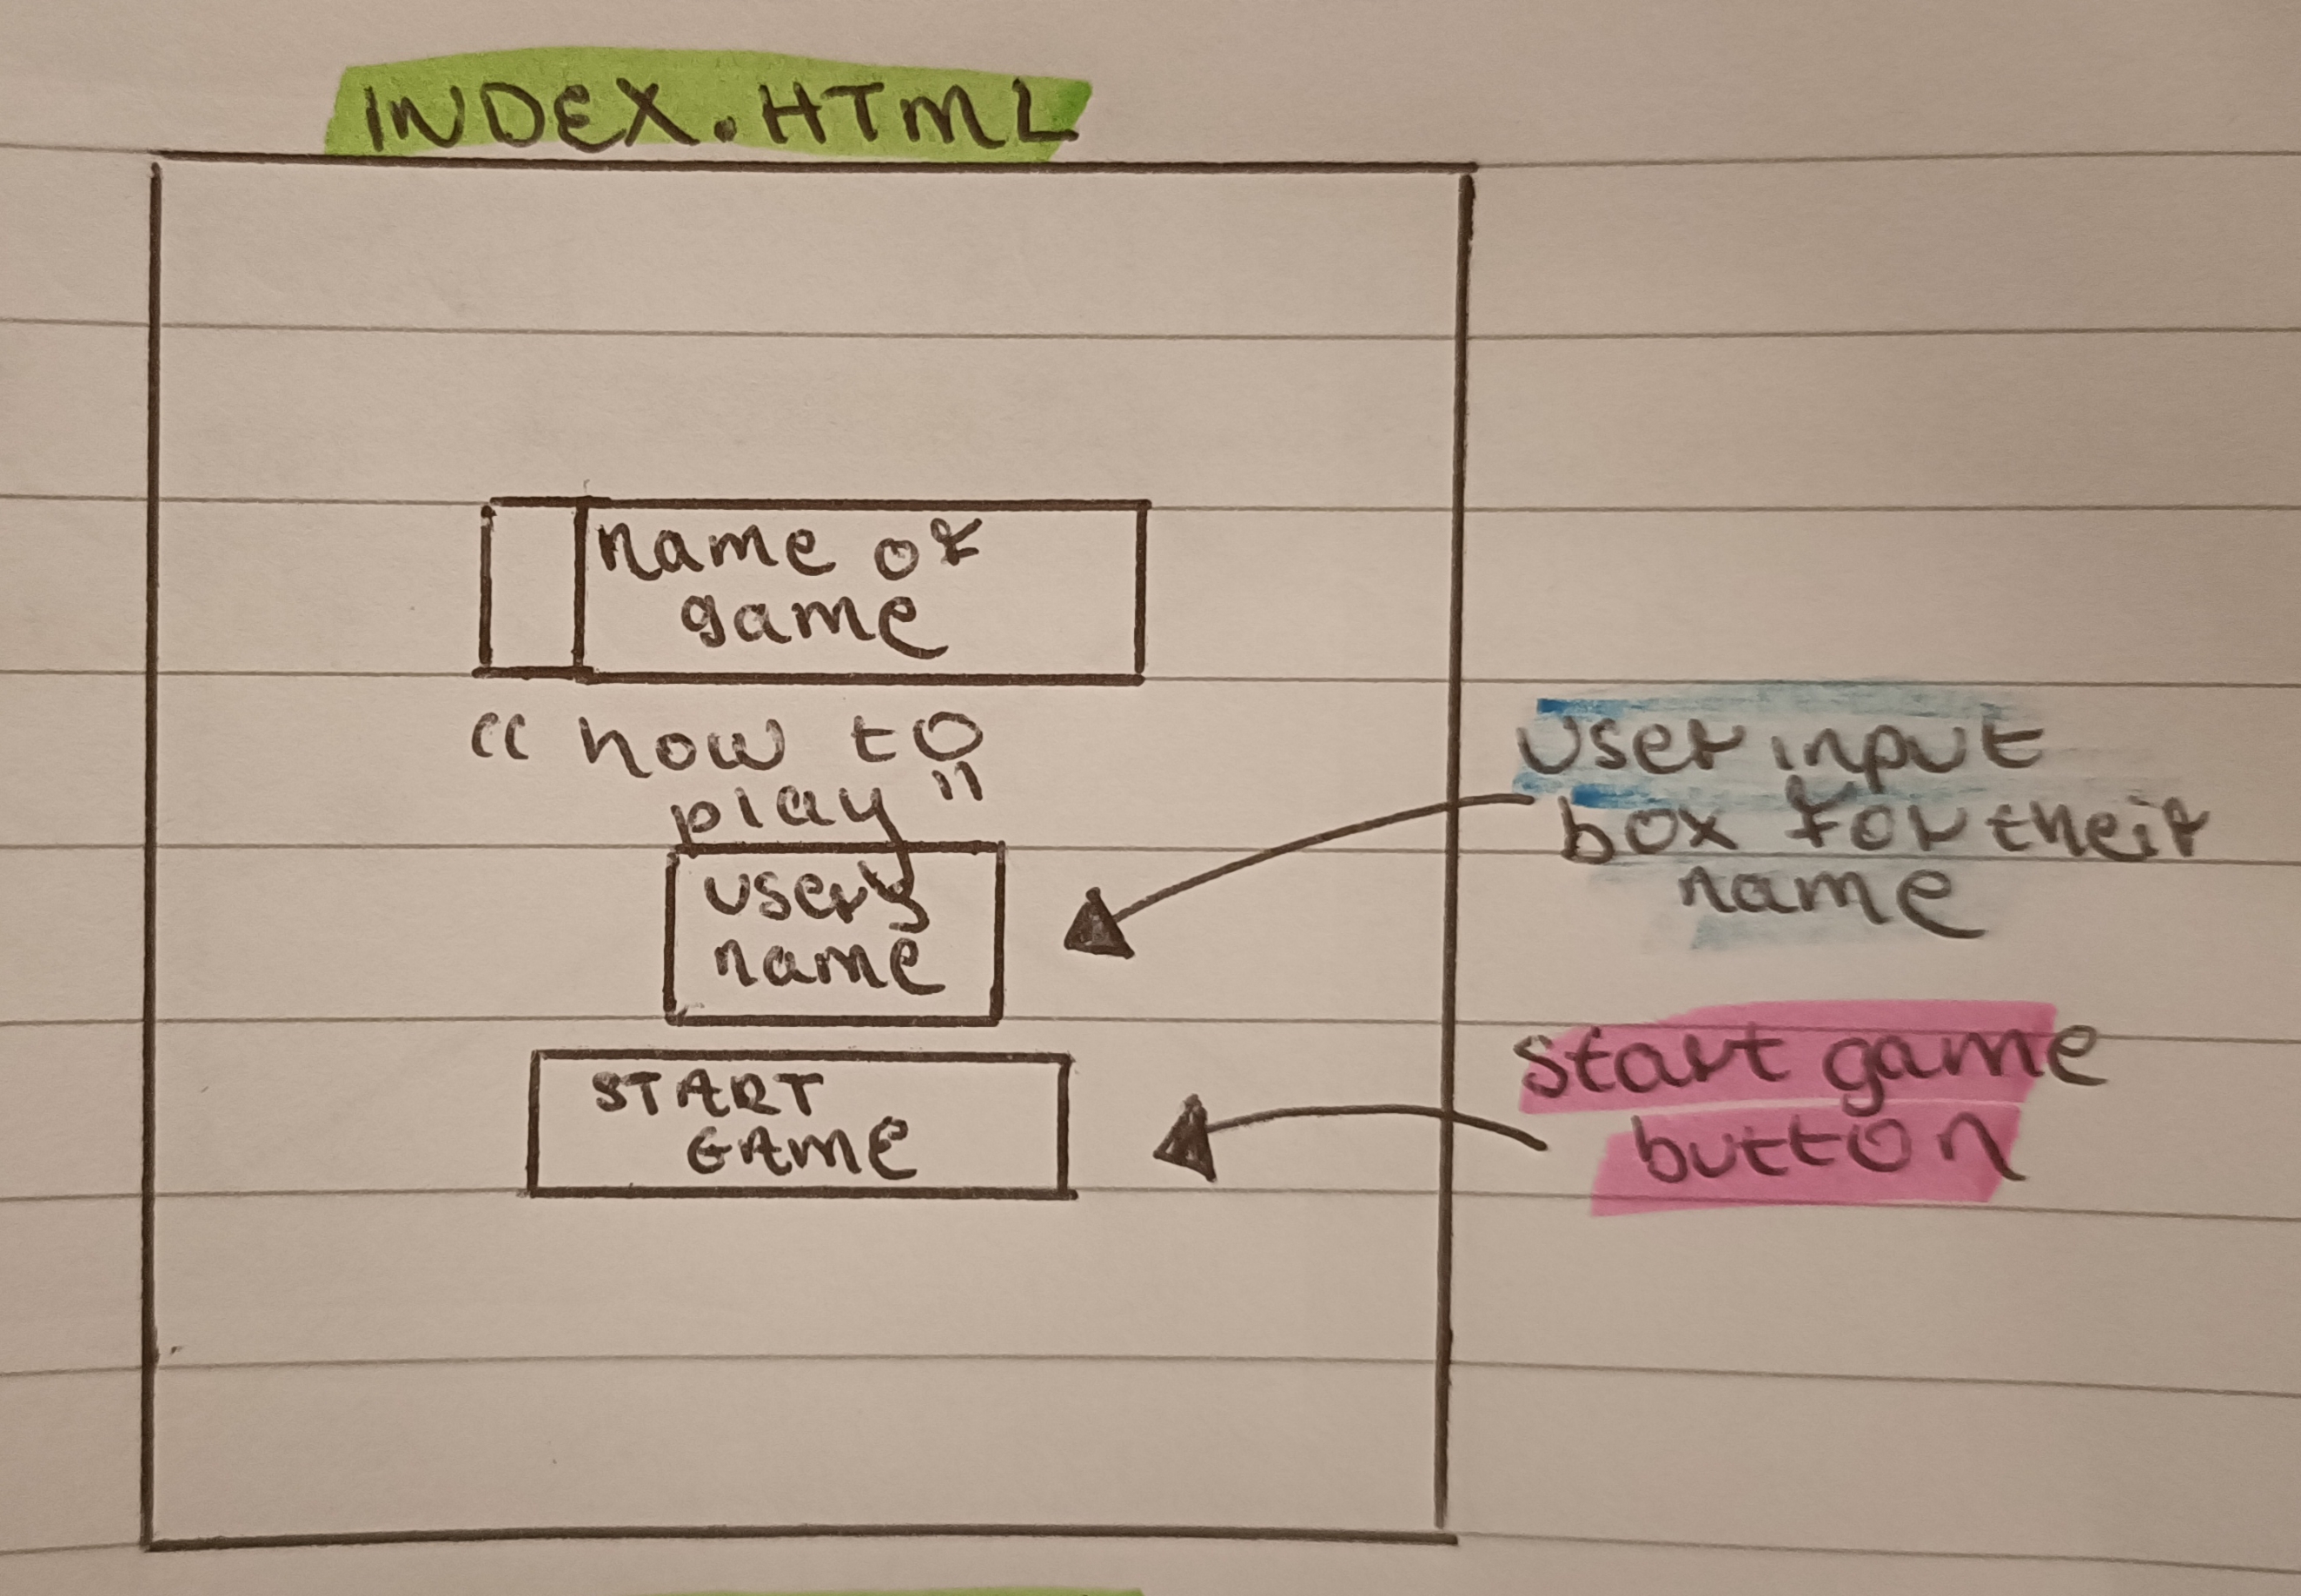 INDEX.HTML
name of
game
" how to
play "
users
name
START
GAME
user input
box for their
name
start game
button